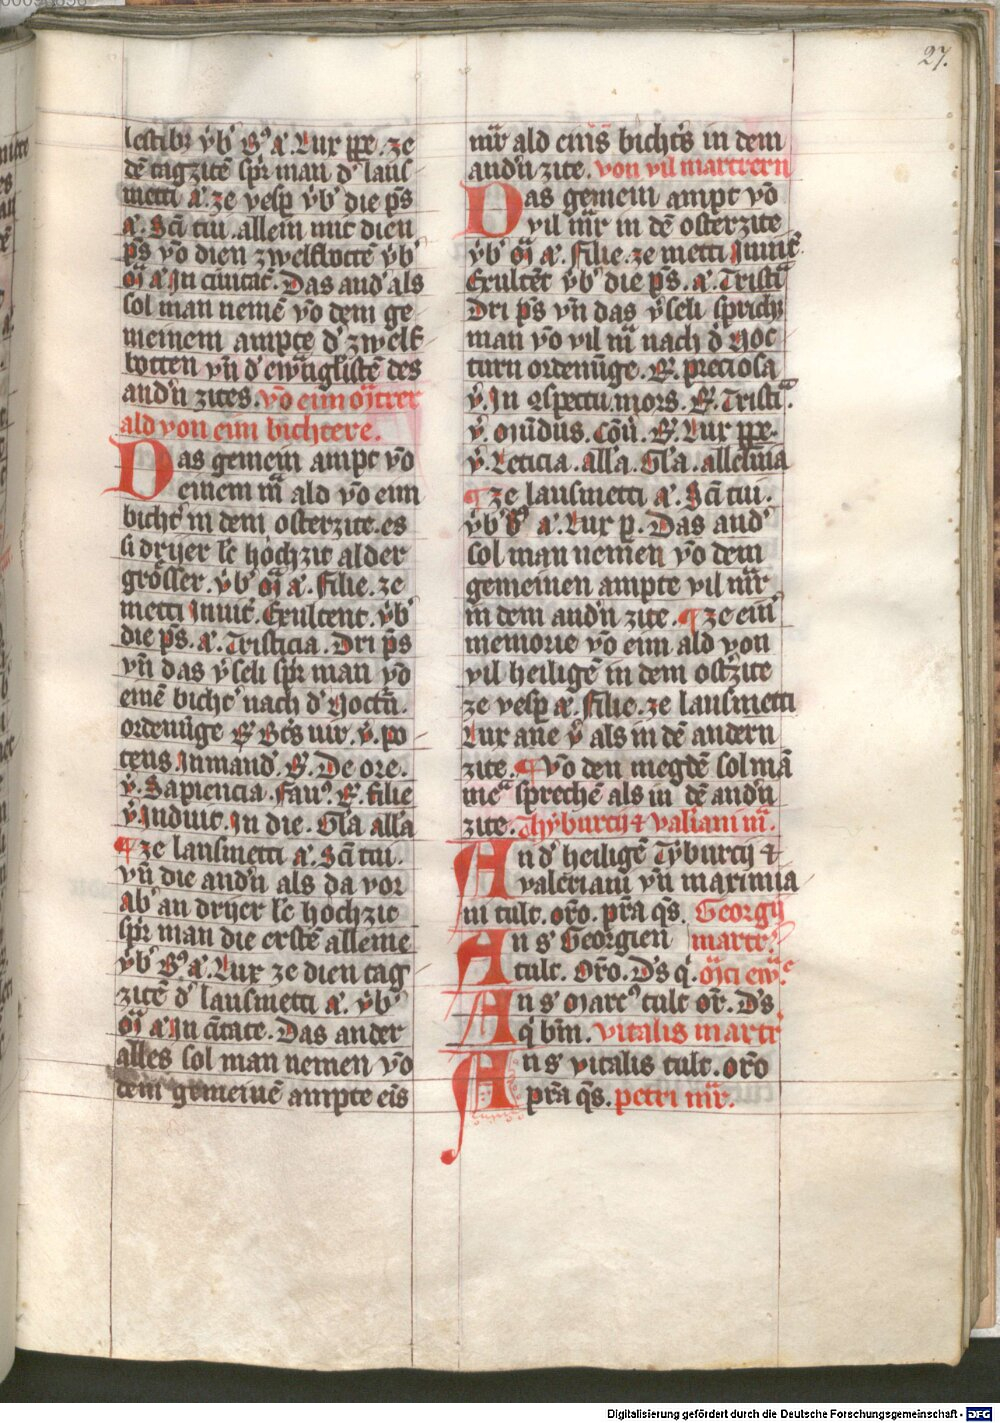 27.
lestibꝫ v̈b' B⁹ a̓. Lux ꝑꝑe. ze
dē tagzitē spr̄ man d' laus
metti a̓. ze vesp v̈b' die ps̄
a̓. Sc̄i tui. allein mit dien
ps̄ vō dien zwelfbottē v̈b'
a̓ In ciuitat̄. Das and' als
sol man nemē vō dem ge
meinem ampte d' zwelf
botten vn̄ d' ewāglistē des
and'n zites. vō eim m̄rer
ald von eim bichtere.
Das gemein ampt vō
einem m̄ ald vō eim
bicht' in dem osterzite. es
si drijer lc̄ hochzit alder
grösser. v̈b' m̄ a̓. Filie. ze
metti Inuit̄. Exultent. v̈b'
die ps̄. a̓. Tristicia. Dri ps̄
vn̄ das v̈seli spr̄ man vō
einē bicht' nach d' Noct'n.
ordenūge R̄ Bt̄s uir. v̓. po
tens. Inmand'. R̄. De ore.
v̓. Sapiencia. Fau⁹. R̄. filie
v̓ Induit. In die. Gl̄a all̄a
¶ ze lausmetti a̓. Sc̄i tui.
vn̄ die and'n als da vor
ab' an drijer lc̄ hochzit
spr̄ man die erstē alleine
v̈b' B⁹ a̓. Lux ze dien tag
zitē d' lausmetti a̓. v̈b'
m̄ a̓ In c̄itate. Das ander
alles sol man nemen vō
dem gemeinē ampte eis̄
mr̄ ald enis̄ bicht's in dem
and'n zite. von vil martrern
Das gemein ampt vō
vil mr̄ in dē osterzite
v̈b' m̄ a̓. Filie. ze metti Inuit̄.
Exultēt v̈b' die ps̄. a̓. Tristi
Dri ps̄ vn̄ das v̈seli sprichꝫ
man vō vil m̄ nach d' Noc
turn ordenūge. R̄. preciosa
v̓. In ɔspectu. mors. R̄. Tristi.
v̓. mūdus. cōu. R̄. Lux ꝑꝑe.
v̓. Leticia. all̄a. Gl̄a. alleluia
¶ ze lausmetti a̓. Sc̄i tui.
v̈b' B⁹ a̓. Lux ꝑ. Das and'
sol man nemen vō dem
gemeinen ampte vil mr̄
in dem and'n zite. ¶ ze eiu'
memorie vō eim ald von
vil heiligē in dem ostzite
ze vesp a̓. Filie. ze lausmetti
Lux ane v̓ als in dē andern
zite. ¶ Vō den megdē sol mā
me sprechē als in dē and'n
zite. Thyburcij ⁊ valiani m̄.
An d' heiligē Tyburcij ⁊
valeriani vn̄ maximia
ni cult. oro. pr̄a qs̄. Georgij
An s' Georgien martr.
cult. Oro. Ds̄ q̓. m̄ci ew̄.
An s' Marc⁹ cult or̄. Ds̄
q̓ bīn. vitalis martr
An s' vitalis cult. oro
pr̄a qs̄. petri mr̄.
Digitalisierung gefördert durch die Deutsche Forschungsgemeinschaft - DFG